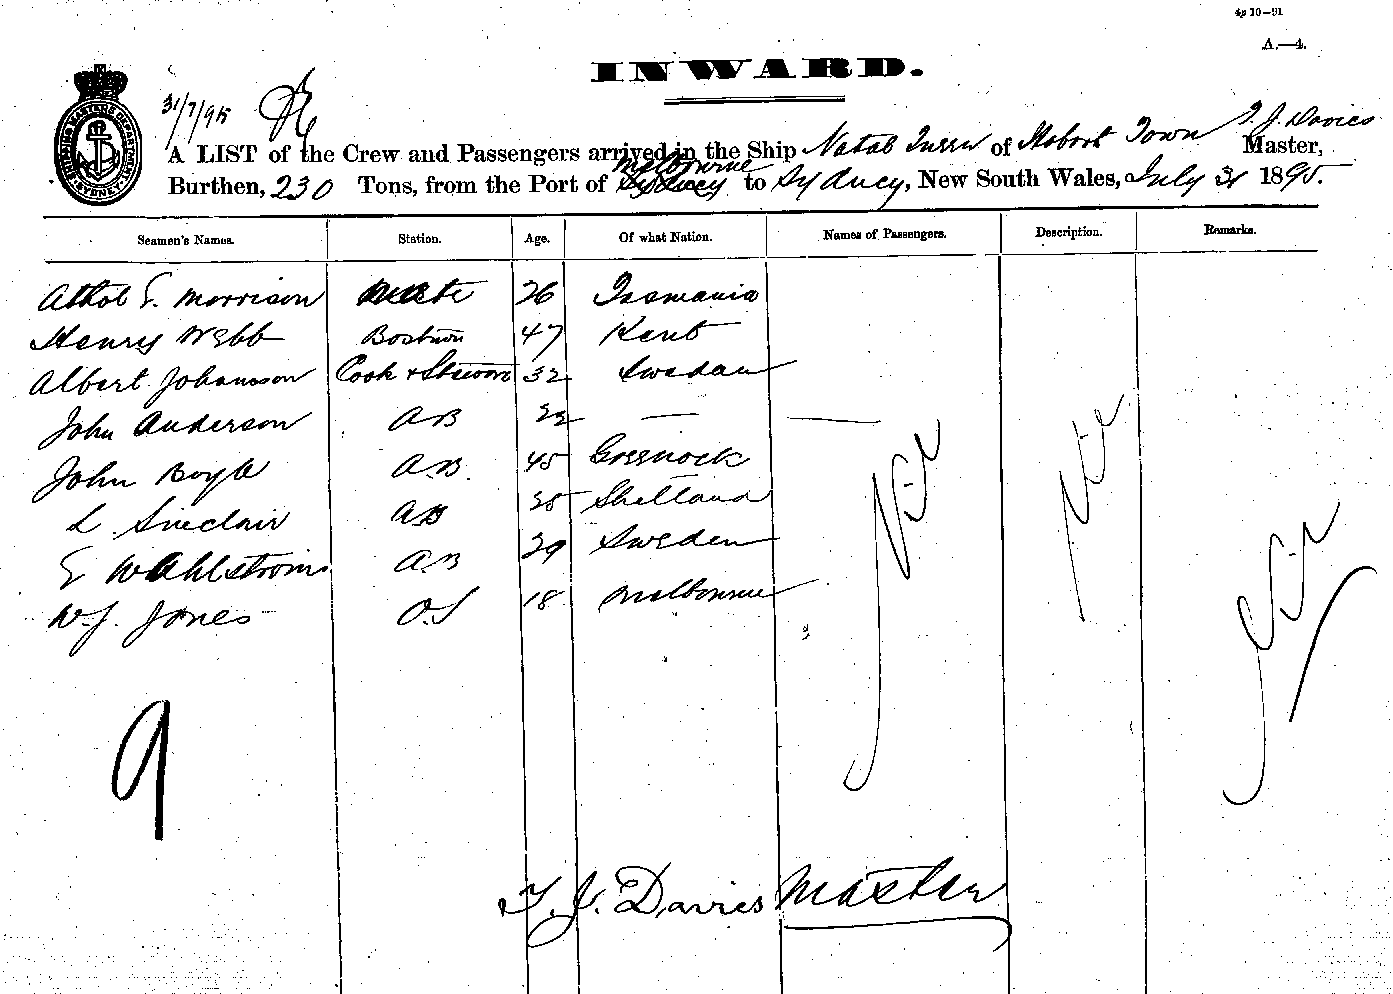 4p 10-91
A.—4.
INWARD.
SHIPPING MASTERS DEPARTMENT SYDNEY
31/7/95
A LIST of the Crew and Passengers arrived in the Ship Natal Queen of Hobart Town T. J. Davies Master,
Burthen, 230 Tons, from the Port of Sydney Melbourne to Sydney, New South Wales, July 31 1895.
Seamen's Names. Station. Age. Of what Nation. Names of Passengers. Description. Remarks.
Athol E. Morrison Mate 26 Tasmania
Henry Webb Bostun 47 Kent
Albert Johansson Cook & Steward 32 Swedan
John Anderson AB — —
John Boyle A.B. 45 Greenock
L. Sinclair AB Shetland
E Wahlstrom A.B 29 Sweden
W. J. Jones O.S 18 Melbourne
Nil Nil Nil
9
T. J. Davies Master